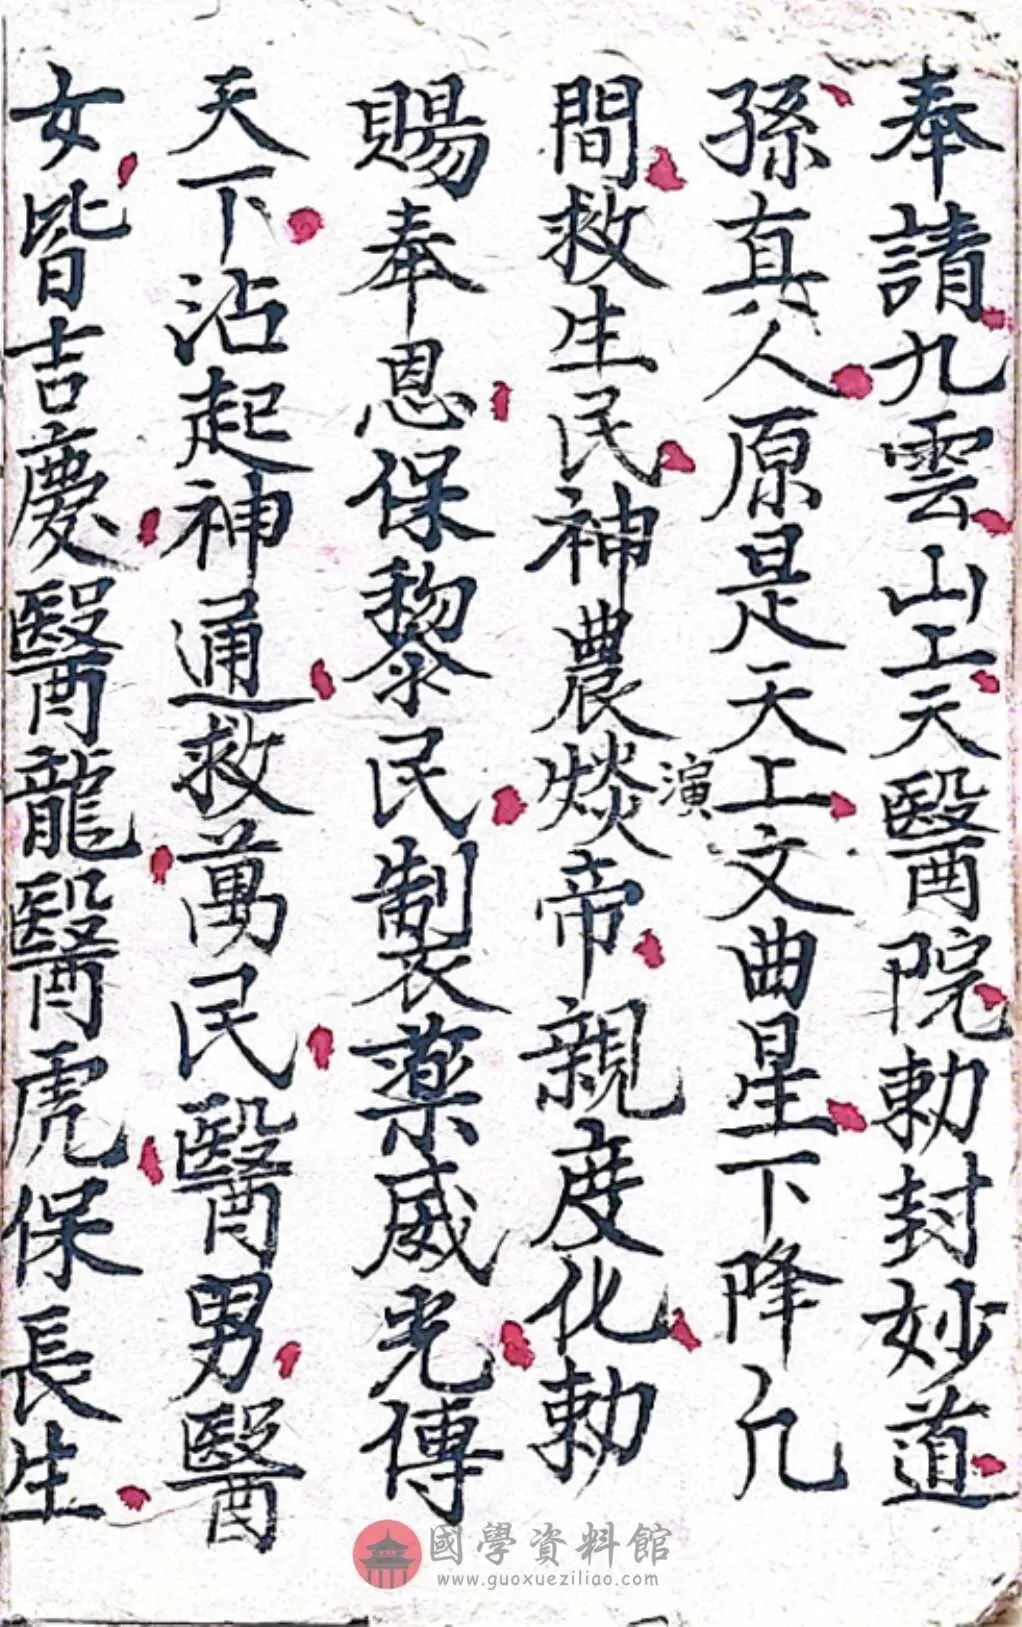 奉請九雲山上天醫院勅封妙道
孫真人原是天上文曲星下降凢
間救生民神農燚帝親度化勅
演
賜奉恩保黎民制衣藥威光傳
天下沾起神通救萬民醫男醫
女皆吉慶醫龍醫虎保長生
國學資料館
www.guoxueziliao.com